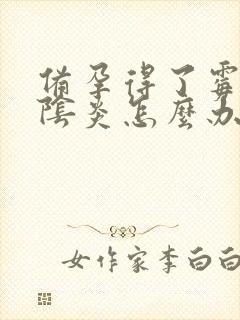 備孕得了霉
陰炎怎麼办
女作家李白白